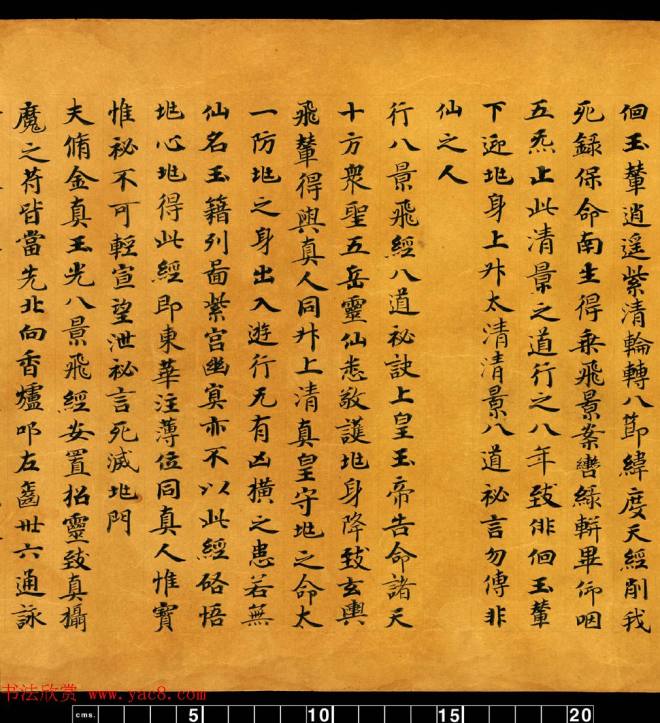 佪玉輦逍遥紫清輪轉八節緯度天經削我
死録保命南生得乗飛景案轡緑軿畢仰咽
五炁止此清景之道行之八年致俳佪玉輦
下迎地身上升太清清景八道祕言勿傳非
仙之人
行八景飛經八道祕訣上皇玉帝告命諸天
十方衆聖五岳靈仙悉敬護地身降致玄輿
飛輦得與真人同升上清真皇守地之命太
一防地之身出入遊行无有凶橫之患若無
仙名玉籍列啚紫宫幽冥亦不以此經啓悟
地心地得此經即東華注薄位同真人惟寶
惟祕不可輕宣望泄祕言死滅地門
夫脩金真玉光八景飛經安置招靈致真攝
魔之符皆當先北向香爐叩左齒卅六通詠
书法欣赏 www.yac8.com
cms. 5 10 15 20